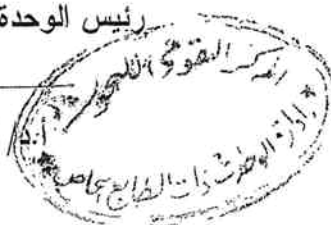 رئيس الوحدة
المركز القومي للبحوث
أ.د/
إدارة الوحدات ذات الطابع الخاص